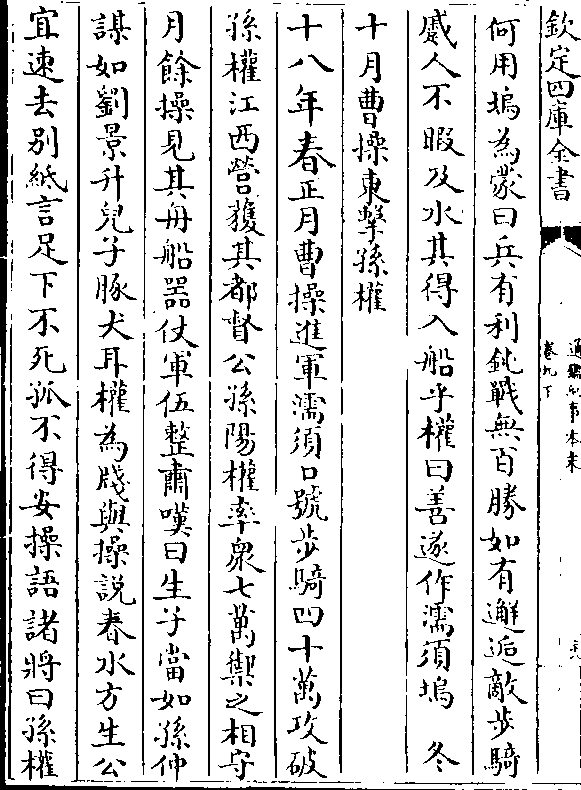 欽定四庫全書
通鑑紀事本末
卷九下
何用塢為蒙曰兵有利鈍戰無百勝如有邂逅敵步騎
蹙人不暇及水其得入船乎權曰善遂作濡須塢　冬
十月曹操東擊孫權
十八年春正月曹操進軍濡須口號步騎四十萬攻破
孫權江西營獲其都督公孫陽權率衆七萬禦之相守
月餘操見其舟船器仗軍伍整肅嘆曰生子當如孫仲
謀如劉景升兒子豚犬耳權為牋與操説春水方生公
宜速去别紙言足下不死孤不得安操語諸將曰孫權